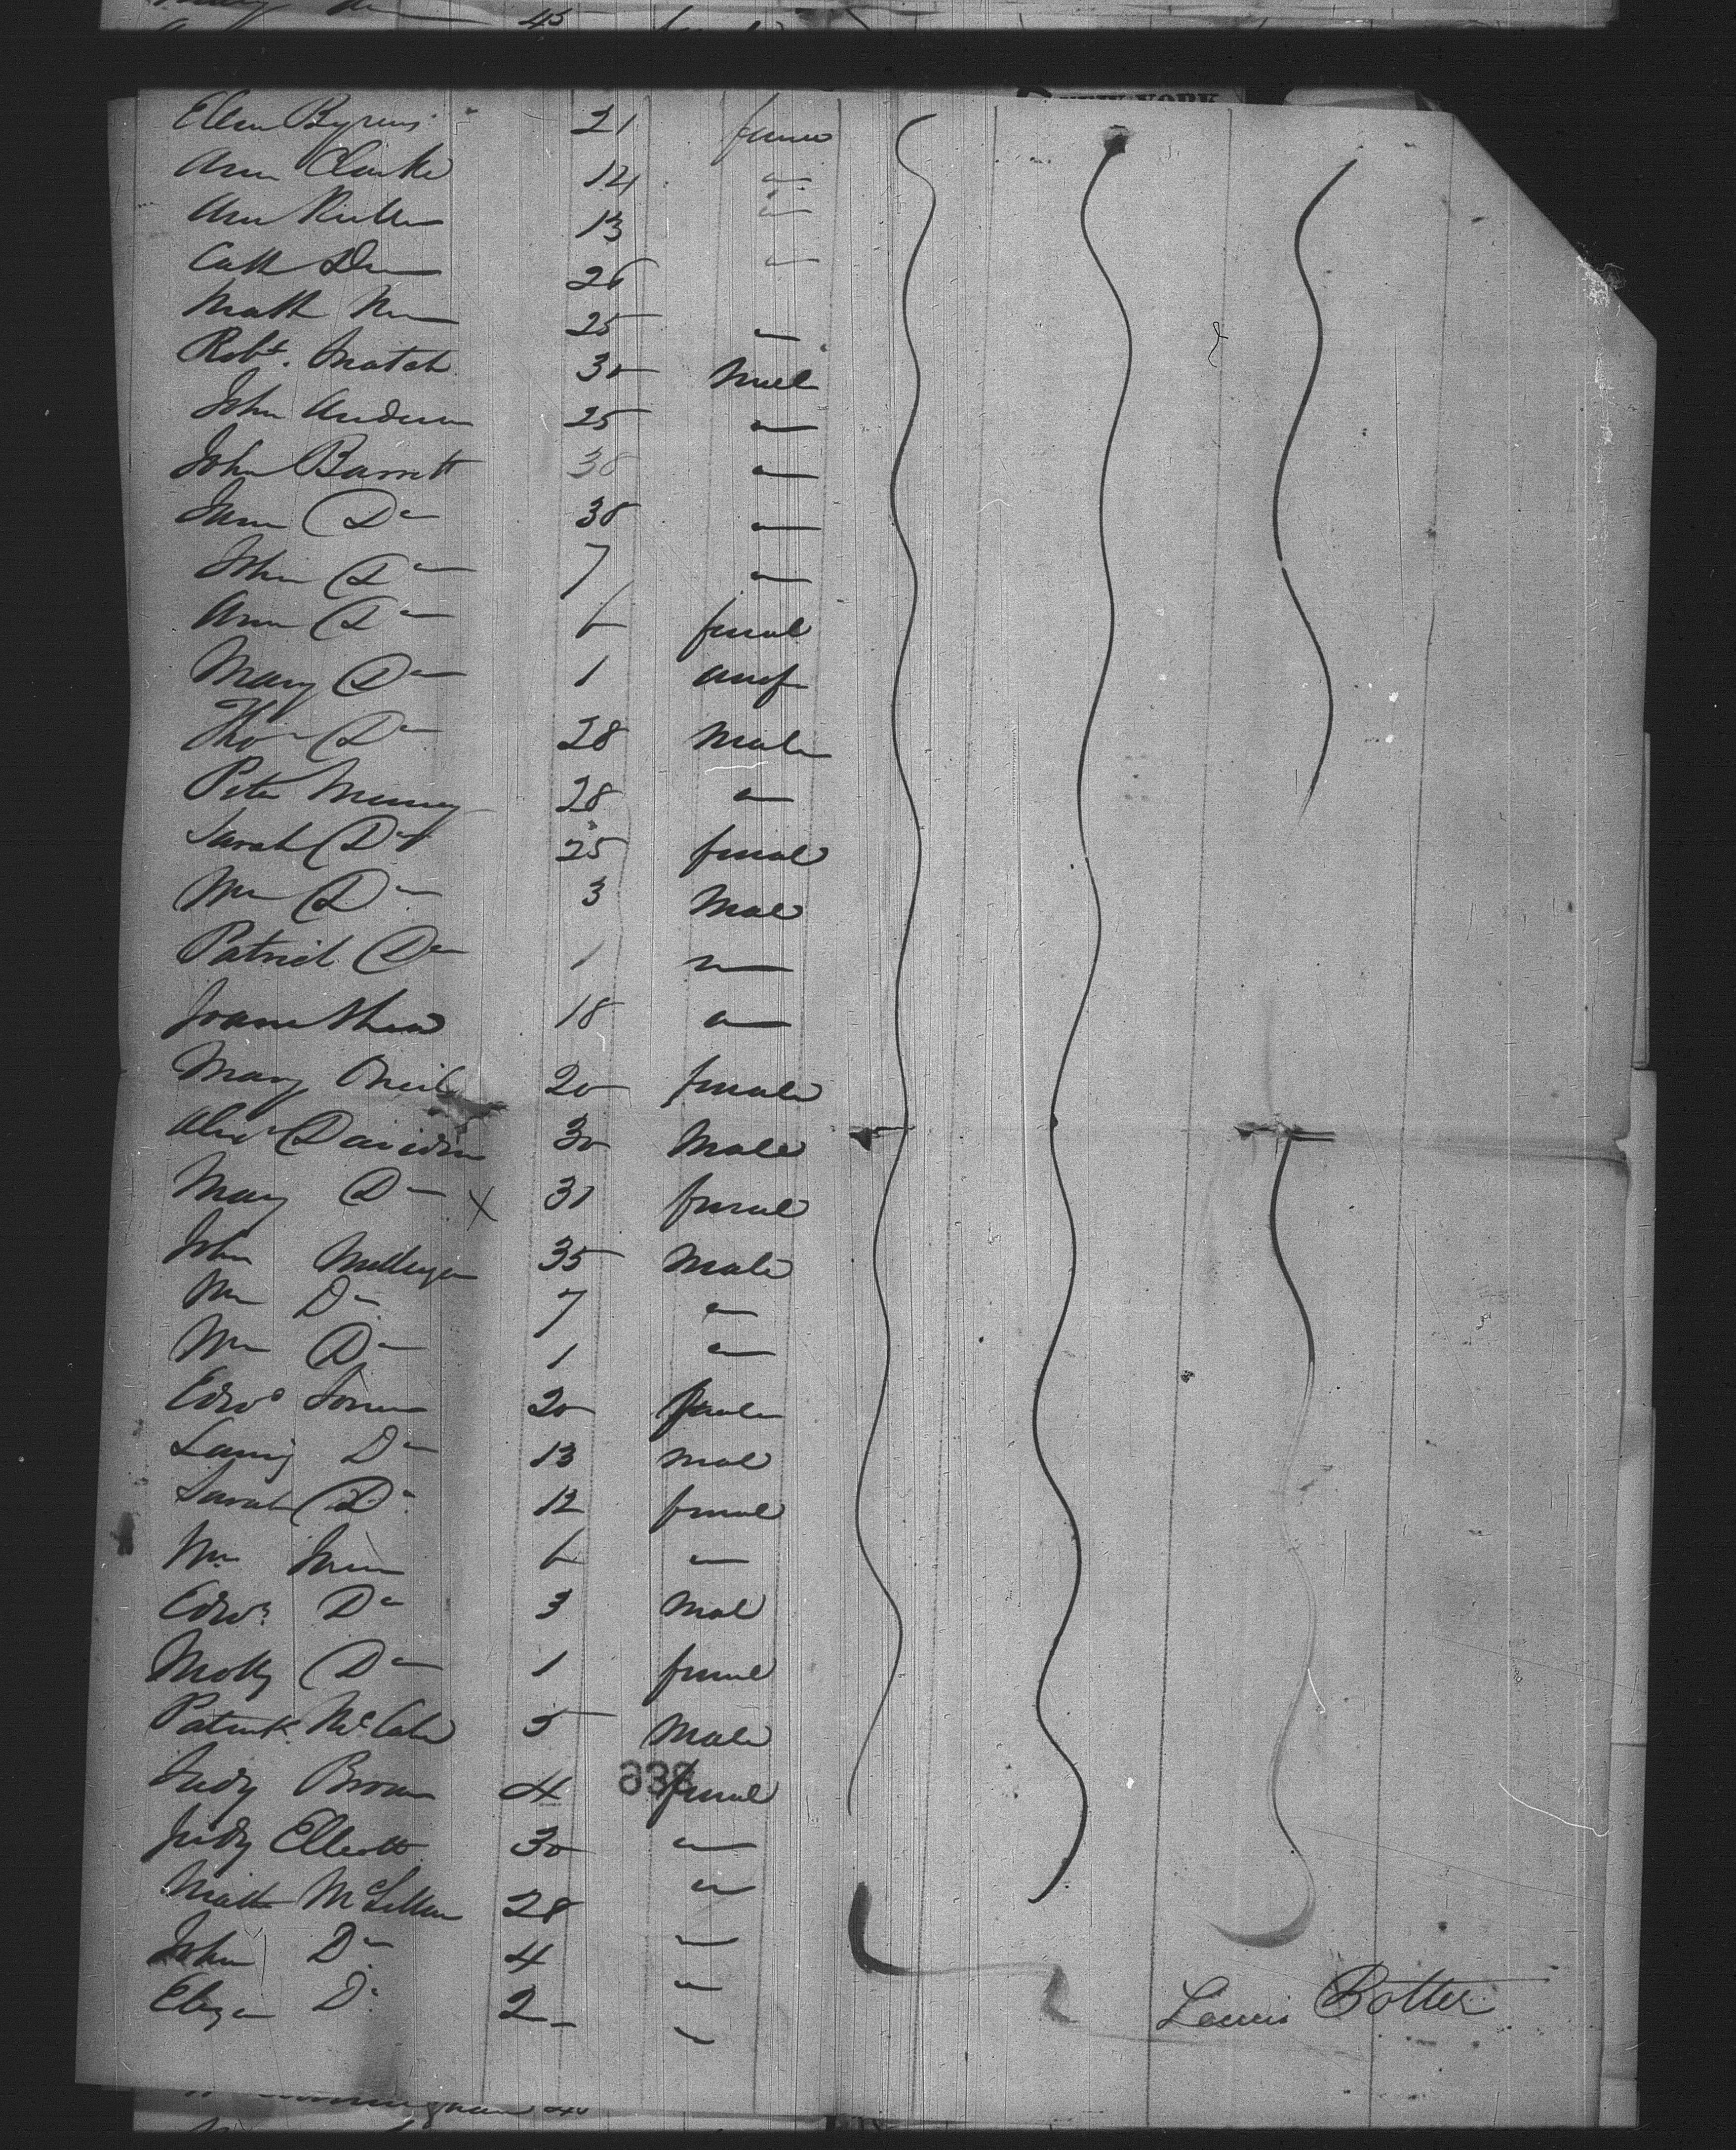 NEW YORK
Ellen Byrnes 21 female
Ann Clarke 14 "
Ann 13 "
Cath 26 "
Matt 25 "
Robt. Match 30 Male
John Anderson 25 "
John Barrett 38 "
Jane Do 38 "
John Do 7 "
Ann Do 6 female
Mary Do 1 Inf
Thos Do 28 Male
Peter Murray 28 "
Sarah Do 25 female
Wm Do 3 Male
Patrick Do 1 "
18 "
Mary Oneil 20 female
Alexr Davidson 30 Male
Mary Do X 31 female
John 35 Male
Wm Do 7 "
Wm Do 1 "
Edwd 20 female
Do 13 male
Sarah Do 12 female
Wm 6 "
Edwd Do 3 Male
Molly Do 1 female
Patrick McCabe 5 Male
Judy Brown 4 female
Judy Elliott 30 "
Matt 28 "
John Do 4 "
Eliza Do 2 "
Lewis Botter